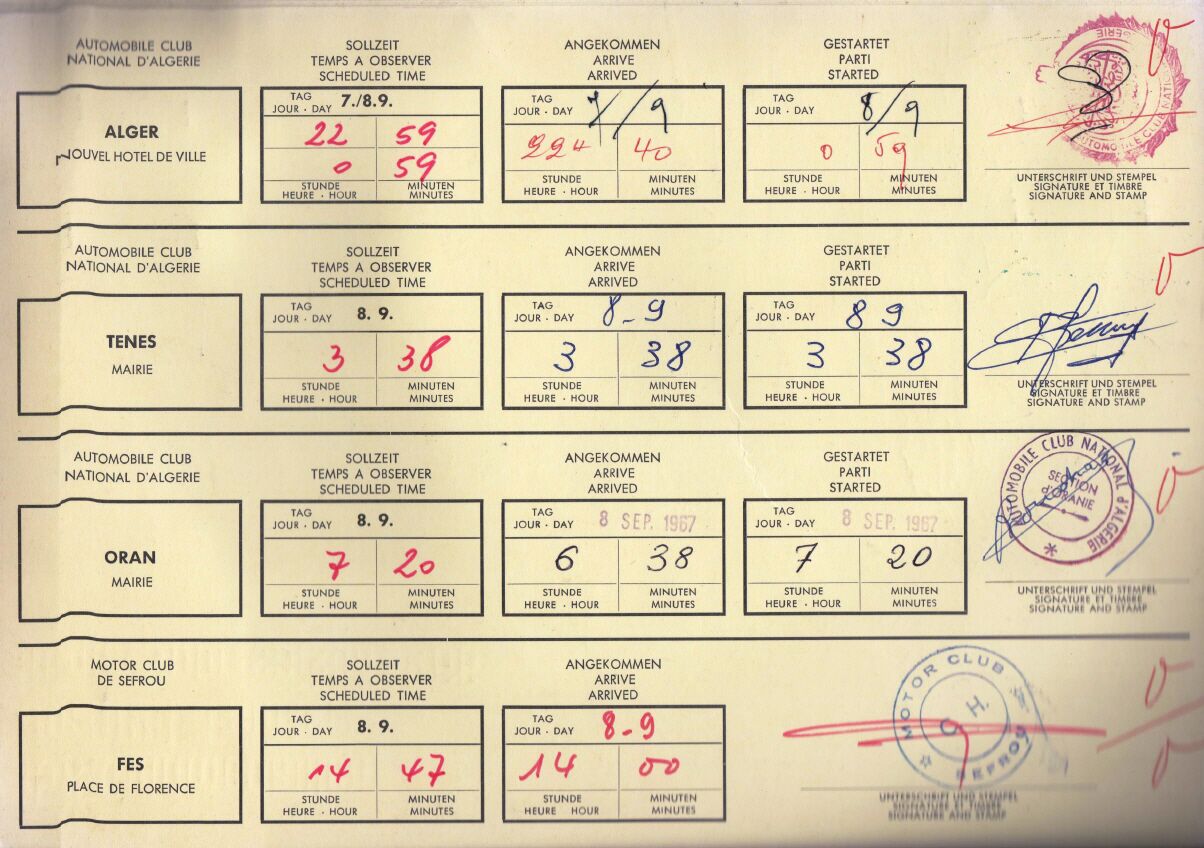 AUTOMOBILE CLUB
NATIONAL D'ALGERIE
ALGER
NOUVEL HOTEL DE VILLE
SOLLZEIT
TEMPS A OBSERVER
SCHEDULED TIME
TAG
JOUR · DAY 7./8.9.
22 59
0 59
STUNDE MINUTEN
HEURE · HOUR MINUTES
ANGEKOMMEN
ARRIVE
ARRIVED
TAG
JOUR · DAY 7/9
22 40
STUNDE MINUTEN
HEURE · HOUR MINUTES
GESTARTET
PARTI
STARTED
TAG
JOUR · DAY 8/9
0 59
STUNDE MINUTEN
HEURE · HOUR MINUTES
AUTOMOBILE CLUB NATIONAL
UNTERSCHRIFT UND STEMPEL
SIGNATURE ET TIMBRE
SIGNATURE AND STAMP
AUTOMOBILE CLUB
NATIONAL D'ALGERIE
TENES
MAIRIE
SOLLZEIT
TEMPS A OBSERVER
SCHEDULED TIME
TAG
JOUR · DAY 8. 9.
3 38
STUNDE MINUTEN
HEURE · HOUR MINUTES
ANGEKOMMEN
ARRIVE
ARRIVED
TAG
JOUR · DAY 8-9
3 38
STUNDE MINUTEN
HEURE · HOUR MINUTES
GESTARTET
PARTI
STARTED
TAG
JOUR · DAY 8 9
3 38
STUNDE MINUTEN
HEURE · HOUR MINUTES
UNTERSCHRIFT UND STEMPEL
SIGNATURE ET TIMBRE
SIGNATURE AND STAMP
AUTOMOBILE CLUB
NATIONAL D'ALGERIE
ORAN
MAIRIE
SOLLZEIT
TEMPS A OBSERVER
SCHEDULED TIME
TAG
JOUR · DAY 8. 9.
7 20
STUNDE MINUTEN
HEURE · HOUR MINUTES
ANGEKOMMEN
ARRIVE
ARRIVED
TAG
JOUR · DAY 8 SEP. 1967
6 38
STUNDE MINUTEN
HEURE · HOUR MINUTES
GESTARTET
PARTI
STARTED
TAG
JOUR · DAY 8 SEP. 1967
7 20
STUNDE MINUTEN
HEURE · HOUR MINUTES
AUTOMOBILE CLUB NATIONAL d'ALGERIE
SECTION
d'ORANIE
UNTERSCHRIFT UND STEMPEL
SIGNATURE ET TIMBRE
SIGNATURE AND STAMP
MOTOR CLUB
DE SEFROU
FES
PLACE DE FLORENCE
SOLLZEIT
TEMPS A OBSERVER
SCHEDULED TIME
TAG
JOUR · DAY 8. 9.
14 47
STUNDE MINUTEN
HEURE · HOUR MINUTES
ANGEKOMMEN
ARRIVE
ARRIVED
TAG
JOUR · DAY 8-9
14 00
STUNDE MINUTEN
HEURE HOUR MINUTES
MOTOR CLUB
SEFROU
UNTERSCHRIFT UND STEMPEL
SIGNATURE ET TIMBRE
SIGNATURE AND STAMP